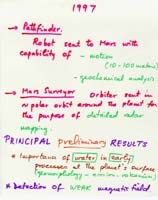 1997
→ Pathfinder.
Robot sent to Mars with
capability of - motion
(10-100 meters)
- geochemical analysis
→ Mars Surveyor Orbiter sent in
~ polar orbit around the planet for
the purpose of detailed radar
mapping.
PRINCIPAL preliminary RESULTS
* Importance of water in early
processes at the planet's surface
(geomorphology - erosion, volcanism)
* Detection of WEAK magnetic field